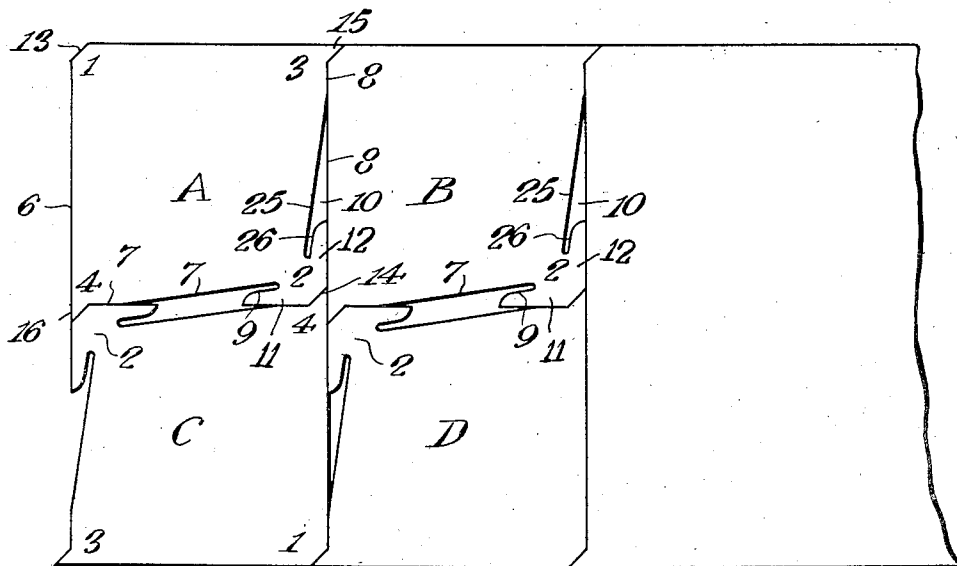 13
15
1
3
8
8
6
A
25
10
B
25
10
26
12
26
12
7
7
2
14
7
2
4
16
9
11
4
9
11
2
2
C
D
3
1